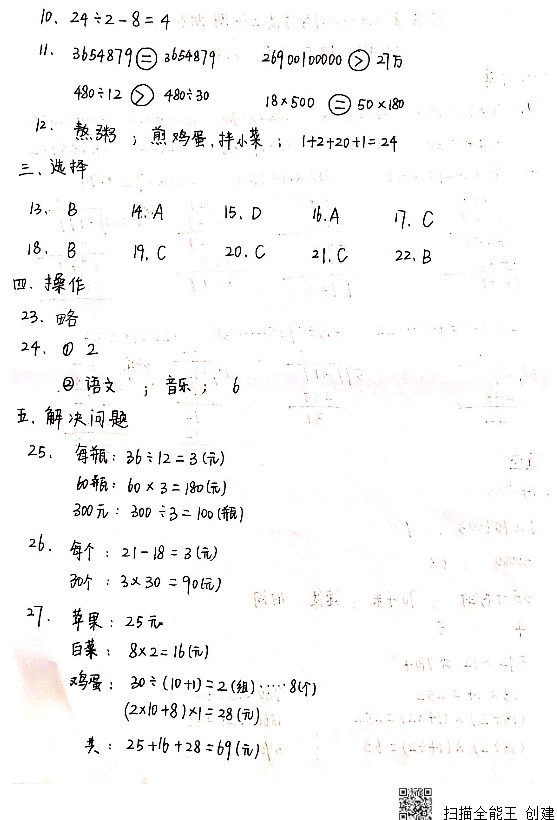 10. 24÷2-8=4
11. 3654879 = 3654879 26900100000 > 27万
480÷12 > 480÷30 18×500 = 50×180
12. 熬粥 ; 煎鸡蛋,拌小菜 ; 1+2+20+1=24
三、选择
13. B 14. A 15. D 16. A 17. C
18. B 19. C 20. C 21. C 22. B
四. 操作
23. 略
24. ① 2
② 语文 ; 音乐 ; 6
五. 解决问题
25. 每瓶: 36÷12=3(元)
60瓶: 60×3=180(元)
300元: 300÷3=100(瓶)
26. 每个: 21-18=3(元)
30个: 3×30=90(元)
27. 苹果: 25元
白菜: 8×2=16(元)
鸡蛋: 30÷(10+1)=2(组)·····8(个)
(2×10+8)×1=28(元)
共: 25+16+28=69(元)
扫描全能王 创建